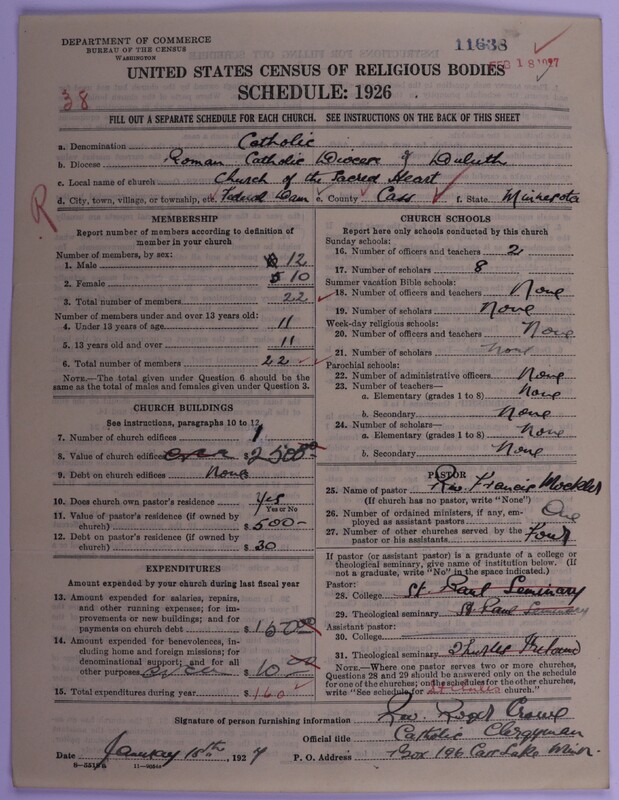 DEPARTMENT OF COMMERCE
BUREAU OF THE CENSUS
WASHINGTON
11638
FEB 18 1927
38
UNITED STATES CENSUS OF RELIGIOUS BODIES
SCHEDULE: 1926
FILL OUT A SEPARATE SCHEDULE FOR EACH CHURCH. SEE INSTRUCTIONS ON THE BACK OF THIS SHEET
a. Denomination Catholic
b. Diocese Roman Catholic Diocese of Duluth
c. Local name of church Church of the Sacred Heart
d. City, town, village, or township, etc. Federal Dam e. County Cass f. State Minnesota
R
MEMBERSHIP
Report number of members according to definition of member in your church
Number of members, by sex:
1. Male 12
2. Female 10
3. Total number of members 22
Number of members under and over 13 years old:
4. Under 13 years of age 11
5. 13 years old and over 11
6. Total number of members 22
NOTE.—The total given under Question 6 should be the same as the total of males and females given under Question 3.
CHURCH BUILDINGS
See instructions, paragraphs 10 to 12
7. Number of church edifices 1
8. Value of church edifices $2500.00
9. Debt on church edifices None
10. Does church own pastor's residence Yes
Yes or No
11. Value of pastor's residence (if owned by church) $500-
12. Debt on pastor's residence (if owned by church) $30
EXPENDITURES
Amount expended by your church during last fiscal year
13. Amount expended for salaries, repairs, and other running expenses; for improvements or new buildings; and for payments on church debt $150.00
14. Amount expended for benevolences, including home and foreign missions; for denominational support; and for all other purposes $10.00
15. Total expenditures during year $160
CHURCH SCHOOLS
Report here only schools conducted by this church
Sunday schools:
16. Number of officers and teachers 2
17. Number of scholars 8
Summer vacation Bible schools:
18. Number of officers and teachers None
19. Number of scholars None
Week-day religious schools:
20. Number of officers and teachers None
21. Number of scholars None
Parochial schools:
22. Number of administrative officers None
23. Number of teachers—
a. Elementary (grades 1 to 8) None
b. Secondary None
24. Number of scholars—
a. Elementary (grades 1 to 8) None
b. Secondary None
PASTOR
25. Name of pastor Rev. Francis Mockler
(If church has no pastor, write "None")
26. Number of ordained ministers, if any, employed as assistant pastors One
27. Number of other churches served by the pastor or his assistants Four
If pastor (or assistant pastor) is a graduate of a college or theological seminary, give name of institution below. (If not a graduate, write "No" in the space indicated.)
Pastor:
28. College St. Paul Seminary
29. Theological seminary St. Paul Seminary
Assistant pastor:
30. College
31. Theological seminary Thurles Ireland
NOTE.—Where one pastor serves two or more churches, Questions 28 and 29 should be answered only on the schedule for one of the churches; on the schedules for the other churches, write "See schedule for church."
Signature of person furnishing information Rev. Roger Crowe
Official title Catholic Clergyman
Date January 18th, 1927 P. O. Address Box 196 Cass Lake Minn.